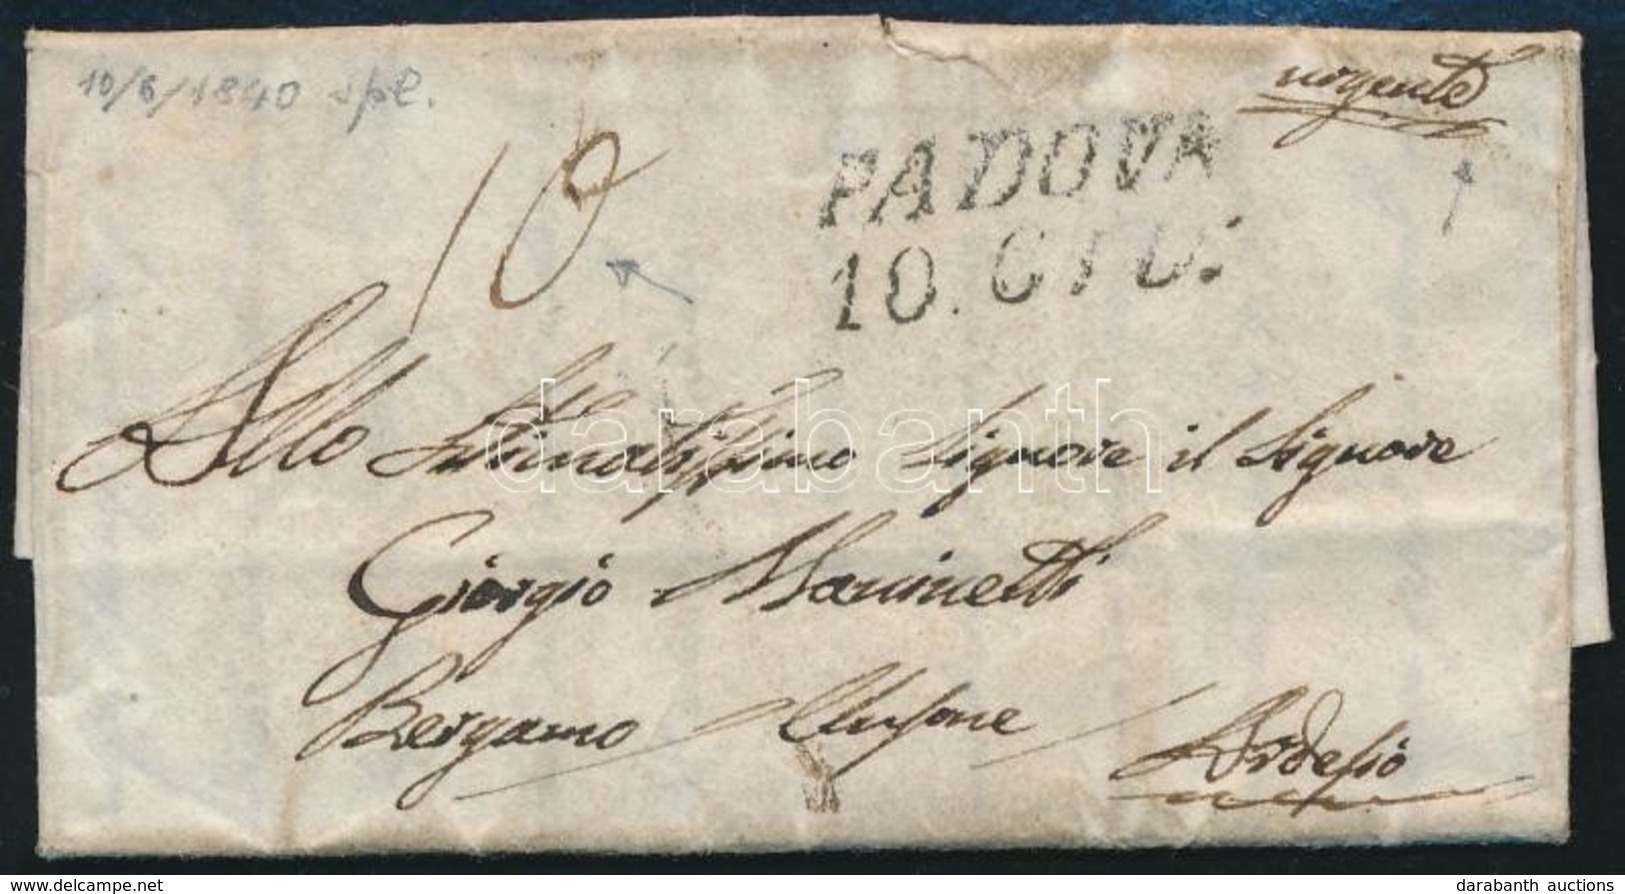 10/6/1840 spl.
urgente
10
PADOVA
10. GIU:
Allo Stimatissimo Signore il Signore
Giorgio Marinetti
Bergamo / Clusone / Ardesio
darabanth
delcampe.net
darabanth auctions